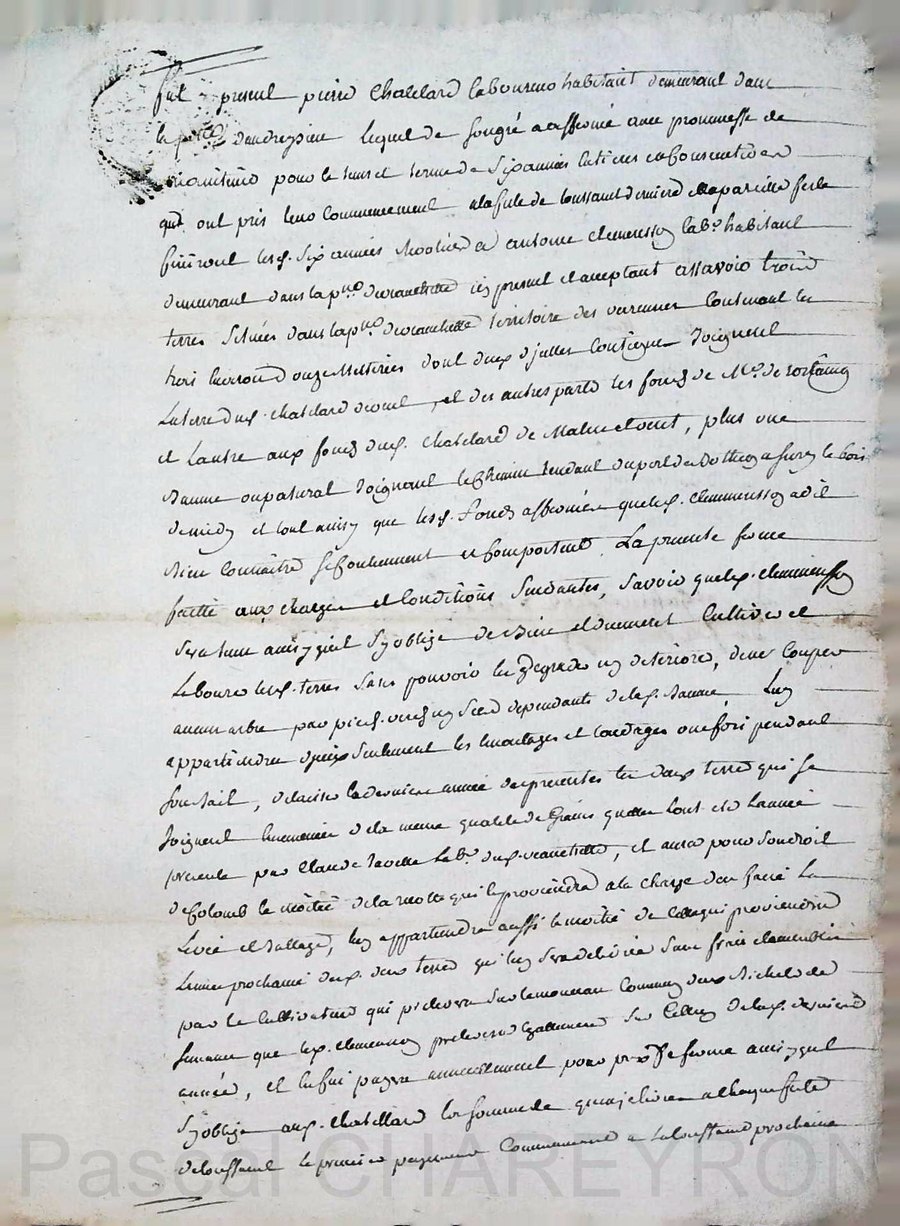 fut present pierre Chatelard laboureur habitant demeurant dans
la psse dandrezieu lequel de son gré a affermé avec prommesse de
maintenir pour le tems et terme de six années entieres et consecutives
qui ont pris leur commencement a la fete de toussaint derniere et a pareille fete
finiront lesd. six années revolues a antoine clemensson labr habitant
demeurant dans la psse de veauchette icy present et acceptant assavoir trois
terres situées dans la psse de veauchette territoire des varennes contenant les
trois environ onze metterées dont deux d'jcelles contigue joignent
la terre dud. chatelard de vent, et des autres parts les fonds de Mr. de
et lautre aux fonds dud. chatelard de matin et vent, plus une
ou patural joignant le chemin tendant du port de a sury le bois
de midy et tout ainsy que lesd. fonds affermés que led. clemensson a dit
bien connaitre se contiennent et comportent. La presente ferme
faitte aux charges et conditions suivantes, savoir que led. clemensson
sera tenu ainsy quil s'y oblige de bien et duement cultiver et
labourer lesd. terres sans pouvoir les degrader ny deteriorer, de ne couper
aucun arbre par pied verd ny sec dependants de lad. Luy
appartiendra seulement les emontages et tondages une fois pendant
son bail, de laisser la derniere année des presentes les deux terres qui se
joignent de la meme qualité de grains quelles lont eté lannée
presente par Claude labr dud. veauchette, et aura pour son droit
de Colomb la moitié de la recolte qui proviendra a la charge den faire la
levée et battage, luy appartiendra aussi la moitié de celle qui proviendra
lannée prochaine desd. deux terres qui luy sera delivrée sans frais
par le cultivateur qui prelevera sur le monceau commun deux Bichets de
semence que led. clemensson prelevera egallement sur celluy de lad. derniere
année, et enfin payera annuellement pour prix de ferme ainsy quil
s'y oblige aud. chatelard la somme de quinze livres a chaque fete
de toussaint le premier payement commencera a la toussaint prochaine
Pascal CHAREYRON